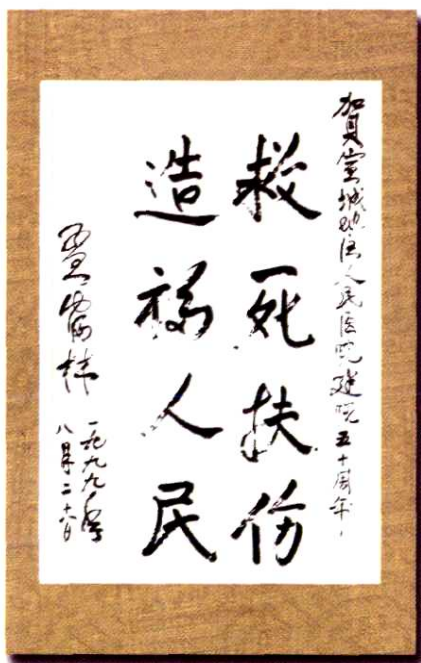 賀宣城地区人民医院建院五十周年
救死扶伤
造福人民
一九九九年
八月二十日